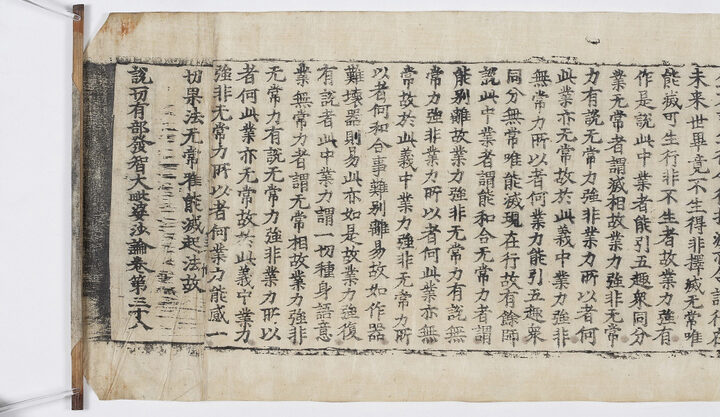 未來世畢竟不生得非擇滅无常唯
能滅可生行非不生者故業力強有
作是說此中業者能引五趣衆同分
業无常者謂滅相故業力強非无常
力有說无常力強非業力所以者何
此業亦无常故於此義中業力強非
無常力所以者何業力能引五趣衆
同分無常唯能滅現在行故有餘師
說此中業者謂能和合无常力者謂
能別離故業力強非无常力有說無
常力強非業力所以者何此業亦無
常故於此義中業力強非无常力所
以者何和合事難別離易故如作器
難壞器則易此亦如是故業力強復
有說者此中業力謂一切種身語意
業無常力者謂无常相故業力強非
无常力有說无常力強非業力所以
者何此業亦无常故於此義中業力
強非无常力所以者何業力能感一
切果法无常唯能滅起法故
說一切有部發智大毗婆沙論卷第三十八